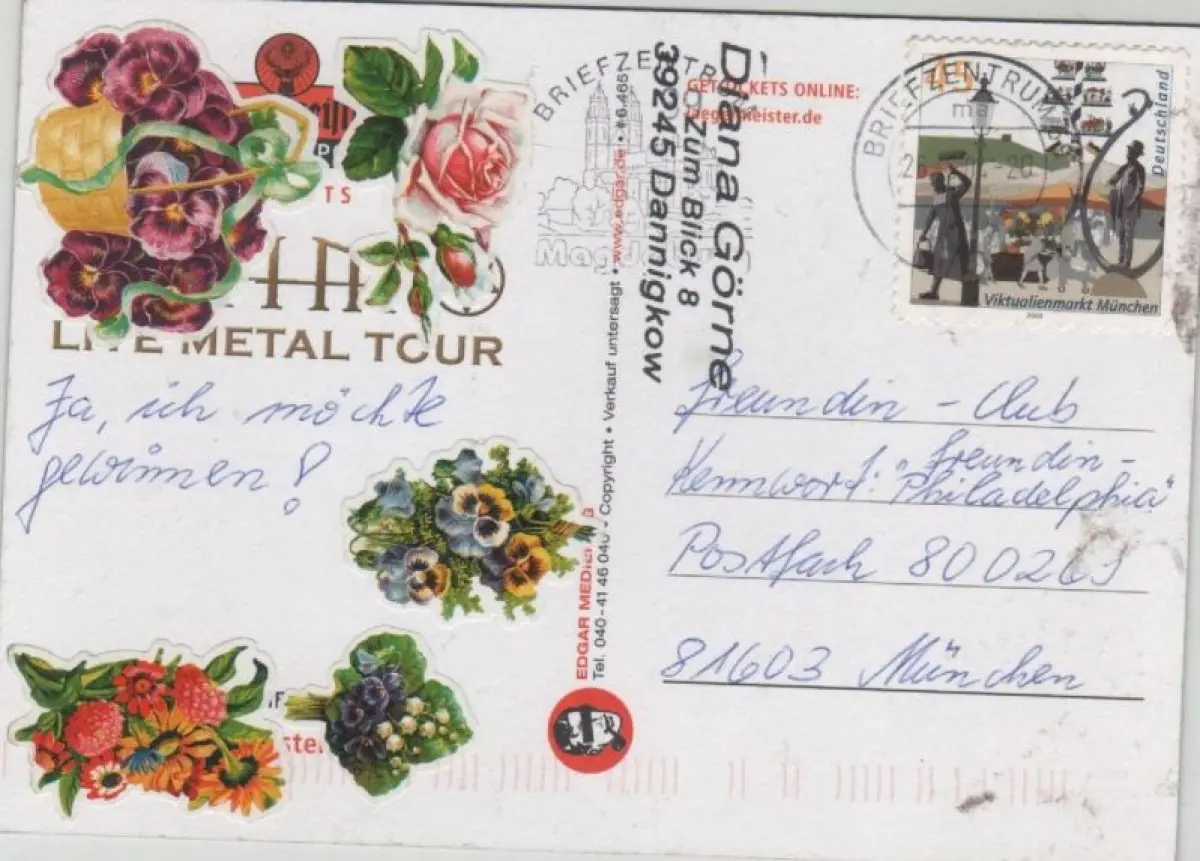 TS
LIVE METAL TOUR
Ja, ich möchte
gewinnen!
EDGAR MEDIEN
Tel. 040-41 46 040 • Copyright • Verkauf untersagt • www.edgar.de • 6.465
BRIEFZENTR
Mag
Diana Görne
zum Blick 8
39245 Dannigkow
GET TICKETS ONLINE:
jaegermeister.de
BRIEFZENTRUM
45
Deutschland
Viktualienmarkt München
2003
Freundin - Club
Kennwort: "Freundin-
Philadelphia"
Postfach 800269
81603 München